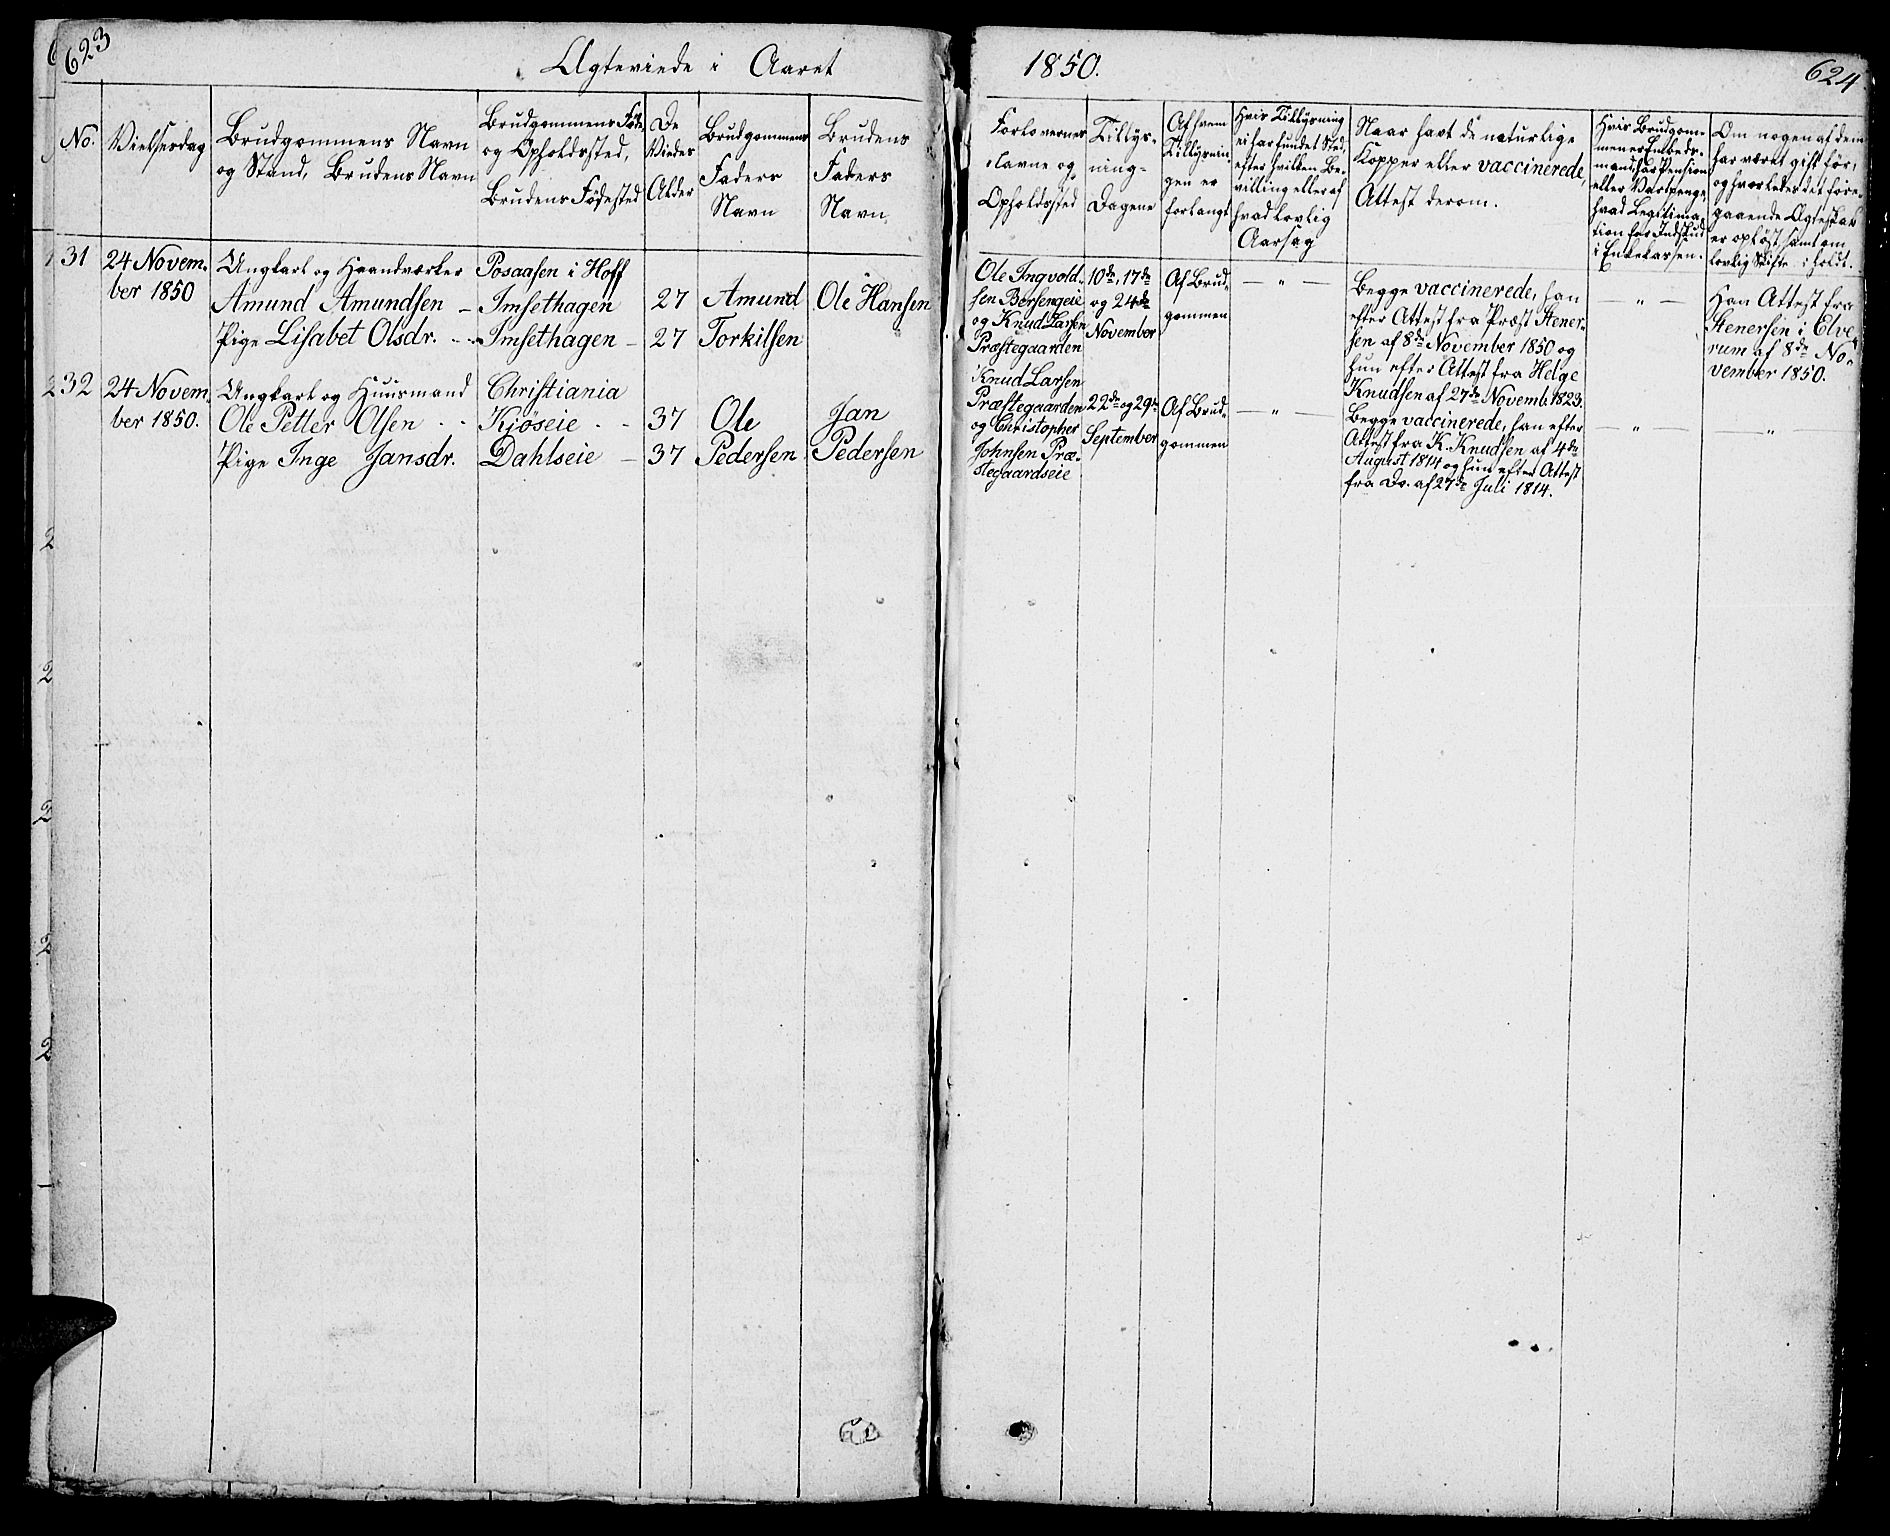 623
Ægteviede i Aaret
1850.
624
No.
Vielsesdag
Brudgommens Navn
og Stand, Brudens Navn
Brudgommens Føde
og Opholdssted,
Brudens Fødested
De
Viedes
Alder
Brudgommens
Faders
Navn
Brudens
Faders
Navn
Forlovernes
Navne og
Opholdssted
Tillys-
nings-
Dagene
Af hvem
Tillysnin-
gen er
forlangt
Hvis Tillysning
ei har fundet Sted,
efter hvilken Be-
villing eller af
hvad lovlig
Aarsag
Naar havt de naturlige
Kopper eller vaccinerede,
Attest derom.
Hvis Brudgom-
men er Embeds-
mand, har Pension
eller Vartpenge,
hvad Legitima-
tion for Indskud
i Enkekassen.
Om nogen af dem
har været gift før,
og hvorledes det fore-
gaaende Ægteskab
er opløst, samt om
lovlig Skifte i holdt.
31
24 Novem-
ber 1850
Ungkarl og Haandværker
Amund Amundsen –
Pige Lisabet Olsdr. - -
Posaasen i Hoff
Imsethagen
Imsethagen –
27
27
Amund
Torkilsen
Ole Hansen
Ole Ingvold-
sen Børsengeie
og Knud Larsen
Præstegaarden
10de, 17de
og 24de
November
Af Brud-
gommen
— „ —
Begge vaccinerede, han
efter Attest fra Præst Stener-
sen af 8de November 1850 og
hun efter Attest fra Helge
Knudsen af 27de Novemb. 1823.
— „ —
Han Attest fra
Stenersen i Elve-
rum af 8de No-
vember 1850.
32
24 Novem-
ber 1850.
Ungkarl og Huusmand
Ole Petter Olsen - -
Pige Inge Jansdr.
Christiania
Kjøseie - -
Dahlseie –
37
37
Ole
Pedersen
Jan
Pedersen
Knud Larsen
Præstegaarden
og Christopher
Johnsen Præ-
stegaardseie
22de og 29de
September
Af Brud-
gommen
— „ —
Begge vaccinerede, han efter
Attest fra K. Knudsen af 4de
August 1814 og hun efter Attest
fra Do. af 27de Juli 1814.
— „ —
— „